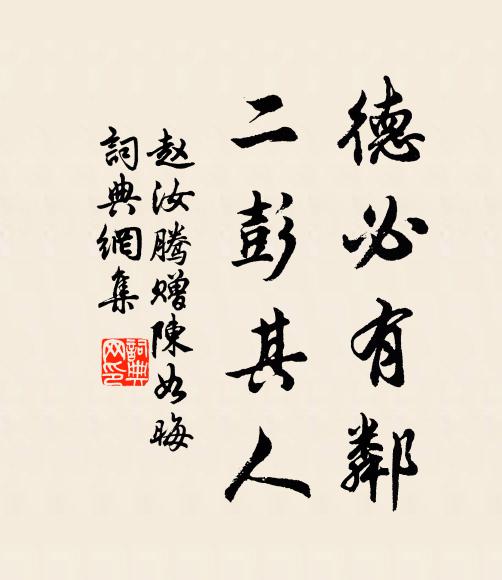 德必有鄰
二彭其人
赵汝腾赠陳如晦
詞典網集
詞典
网印